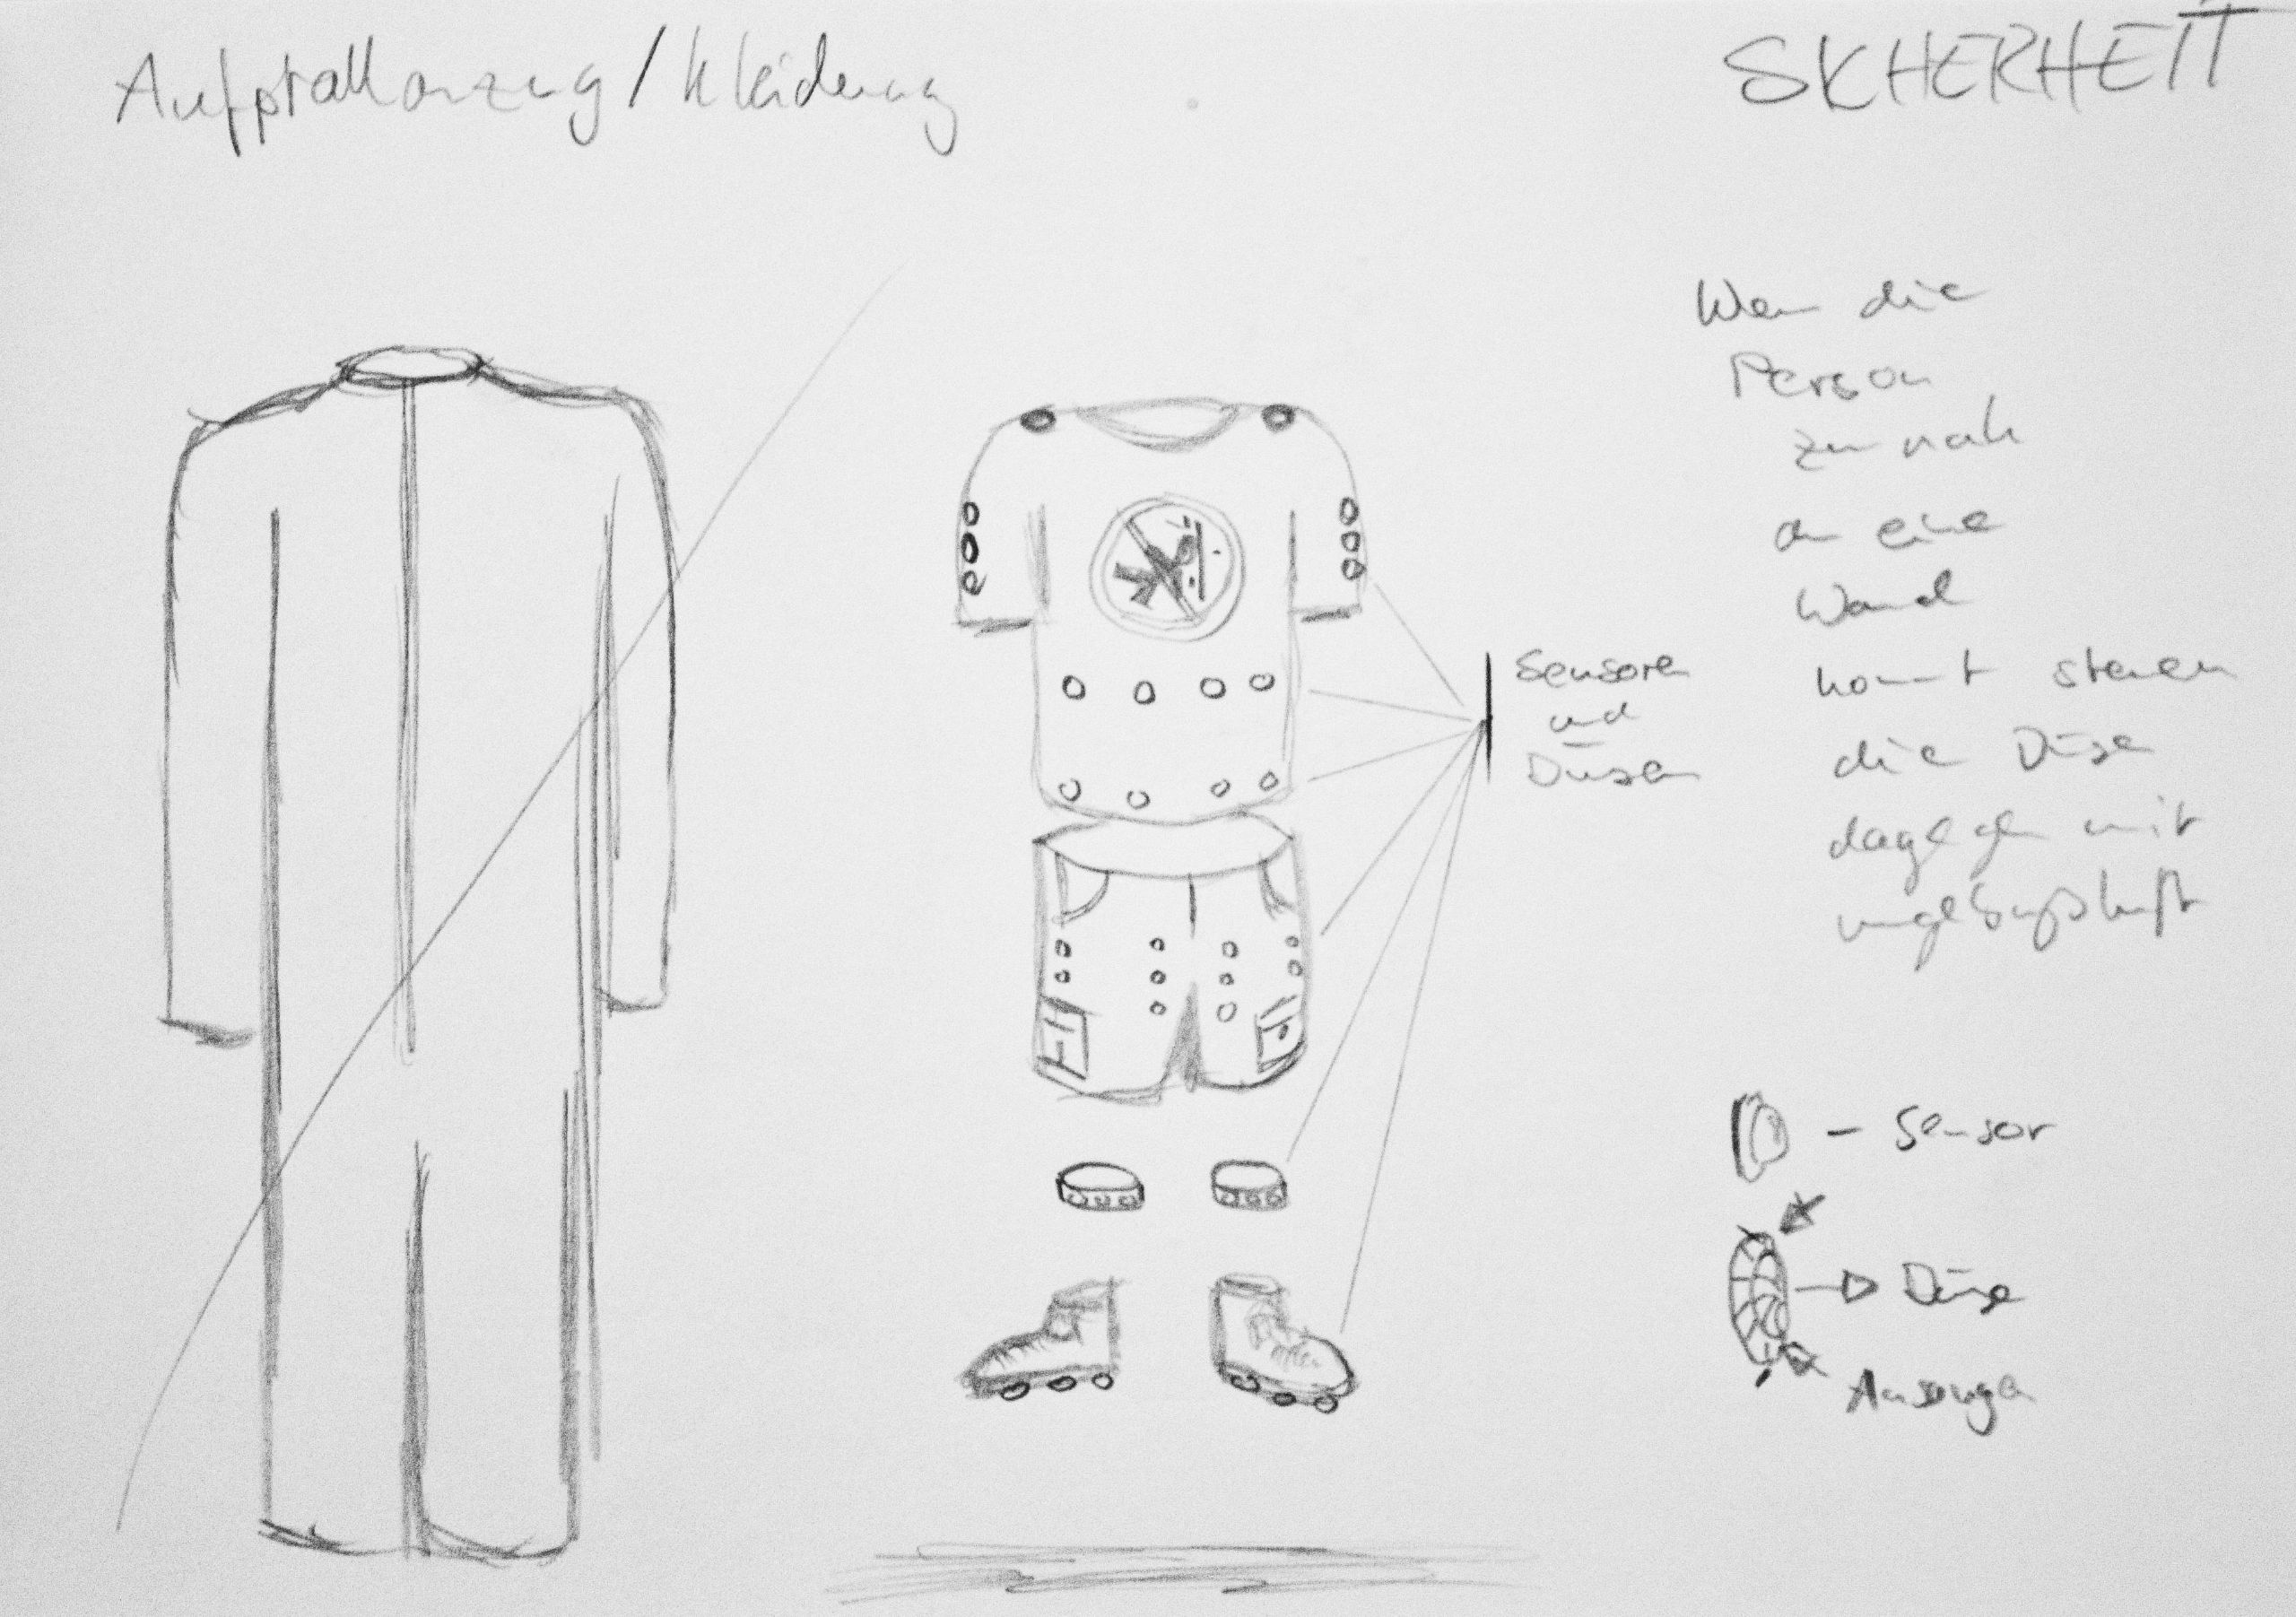 Aufprallanzug / Kleidung
SICHERHEIT
Wen die
Person
zu nah
an eine
Wand
kommt steuern
die Düsen
dagegen mit
umgebungsluft
Sensoren
und
Düsen
- Sensor
Düse
Ansaugen